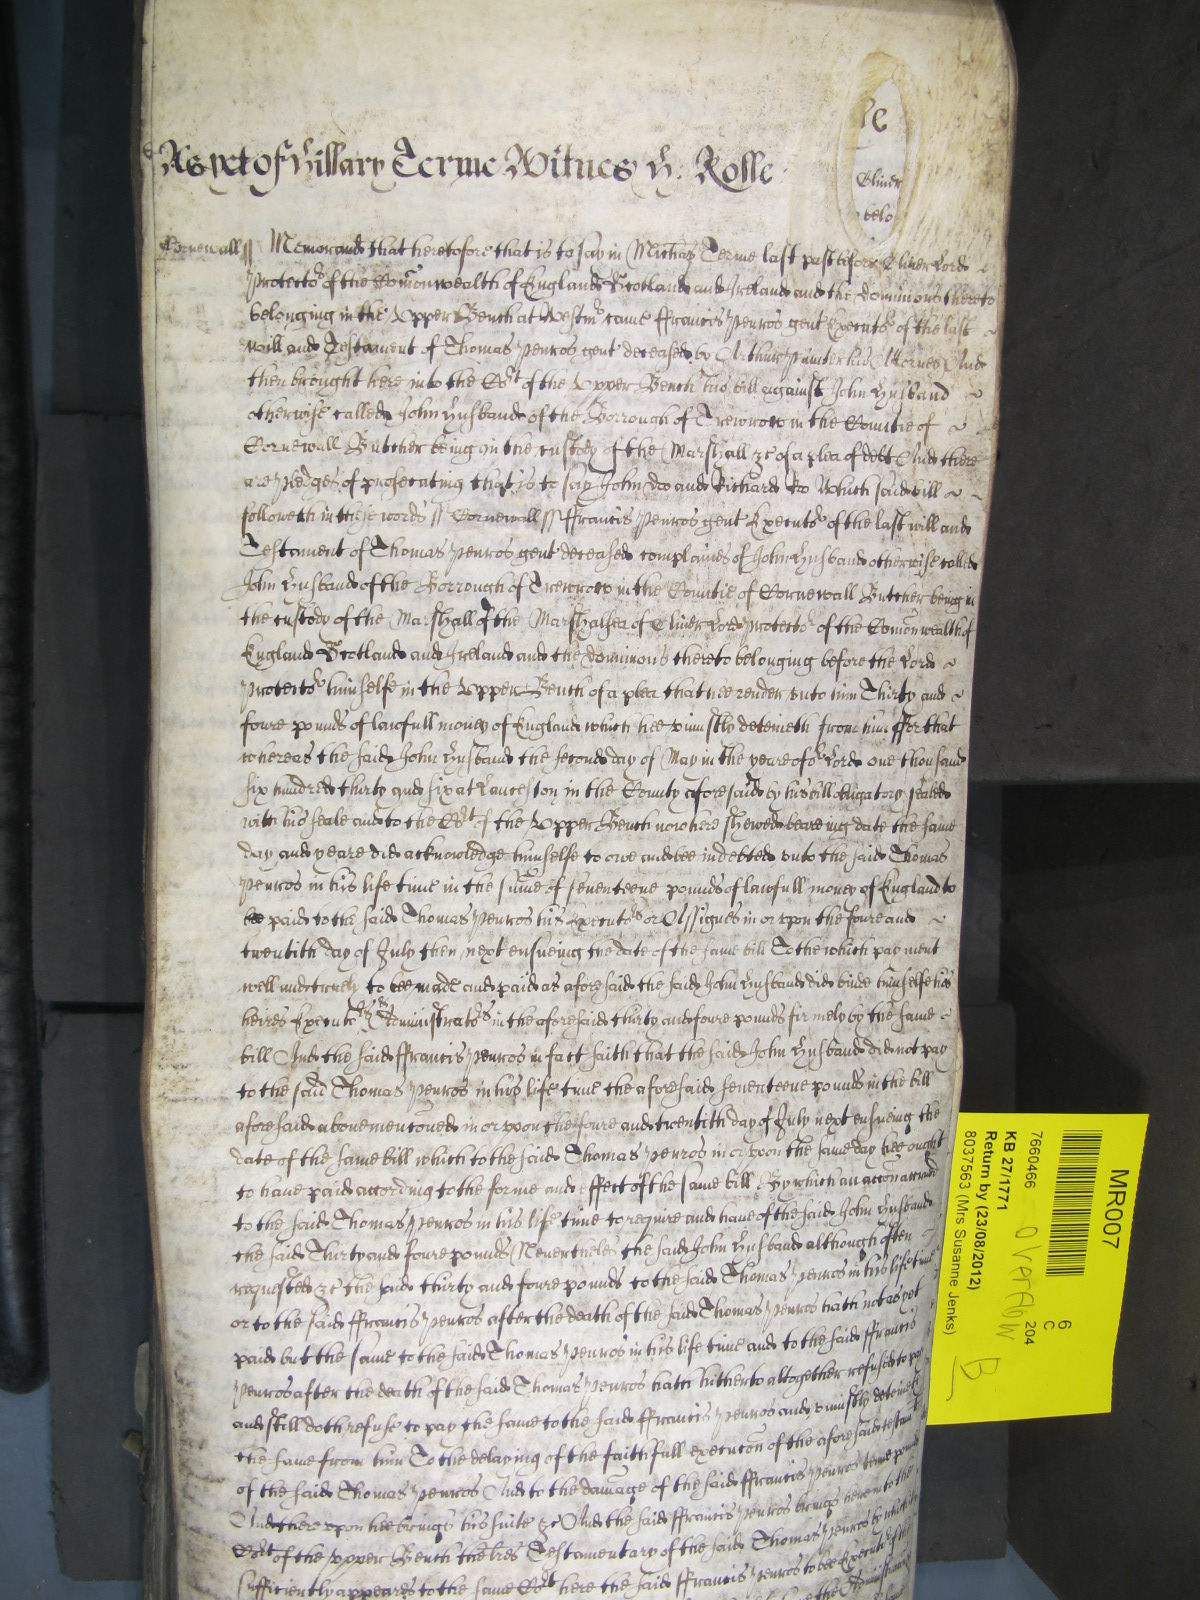 As yet of Hillary Terme Witnes H. Rolle
Cornewall ss Memorand that heretofore that is to say in Michas Terme last past before Oliver Lord
Protector of the Comonwealth of England Scotland and Ireland and the dominions thereto
belonging in the Upper Bench at Westmr came ffrancis Penros gent Executor of the last
will and Testament of Thomas Penros gent deceased by Arthur Painter his Attorney And
then brought here into the Cort of the Upper Bench his bill against John Husband
otherwise called John Husband of the Borrough of in the Countie of
Cornewall Butcher being in the custody of the Marshall &c of a plea of debt And there
are pledges of prosecuting that is to say John Doo and Richard Roo Which said bill
followeth in these words ss Cornewall ss ffrancis Penros gent Executor of the last will and
Testament of Thomas Penros gent deceased complaines of John Husband otherwise called
John Husband of the Borrough of in the Countie of Cornewall Butcher being in
the custody of the Marshall of the Marshalsea of Oliver Lord Protector of the Comonwealth of
England Scotland and Ireland and the dominions thereto belonging before the Lord
Protector himselfe in the Upper Bench of a plea that hee render unto him Thirty and
foure pounds of lawfull money of England which hee uniustly deteineth from him ffor that
whereas the said John Husband the second day of May in the yeare of or Lord one thousand
six hundred thirty and six at Lanceston in the County aforesaid by his bill obligatory sealed
with his seale and to the Cort of the Upper Bench now here shewed beareing date the same
day and yeare did acknowledge himselfe to owe and bee indebted unto the said Thomas
Penros in his life time in the sume of seventeene pounds of lawfull money of England to
bee paid to the said Thomas Penros his Executors or Assignes in or upon the foure and
twentith day of July then next ensueing the date of the same bill To the which payment
well and truely to bee made and paid as aforesaid the said John Husband did binde himselfe his
heires Executors & Administrators in the aforesaid thirty and foure pounds firmely by the same
bill And the said ffrancis Penros in fact saith that the said John Husband did not pay
to the said Thomas Penros in his life time the aforesaid seventeene pounds in the bill
aforesaid abovemenconed in or upon the foure and twentith day of July next ensueing the
date of the same bill which to the said Thomas Penros in or upon the same day hee ought
to have paid according to the forme and effect of the same bill By which an accon accrued
to the said Thomas Penros in his life time to require and have of the said John Husband
the said Thirty and foure pounds Nevertheles the said John Husband although often
requested &c the said thirty and foure pounds to the said Thomas Penros in his life time
or to the said ffrancis Penros after the death of the said Thomas Penros hath not as yet
paid but the same to the said Thomas Penros in his life time and to the said ffrancis
Penros after the death of the said Thomas Penros hath hitherto altogether refused to pay
and still doth refuse to pay the same to the said ffrancis Penros and uniustly deteineth
the same from him To the delaying of the faithfull execucon of the aforesaid testamt
of the said Thomas Penros And to the damage of the said ffrancis Penros tenne pounds
And thereupon hee brings his suite &c And the said ffrancis Penros brings here into the
Cort of the Upper Bench the lres Testamentary of the said Thomas Penros by which it
sufficiently appeares to the same Cort here the said ffrancis Penros to bee Executor of the
Oliver
MR007
7660466
KB 27/1771
Return by (23/08/2012)
8037563 (Mrs Susanne Jenks)
6
C
204
Overflow
B